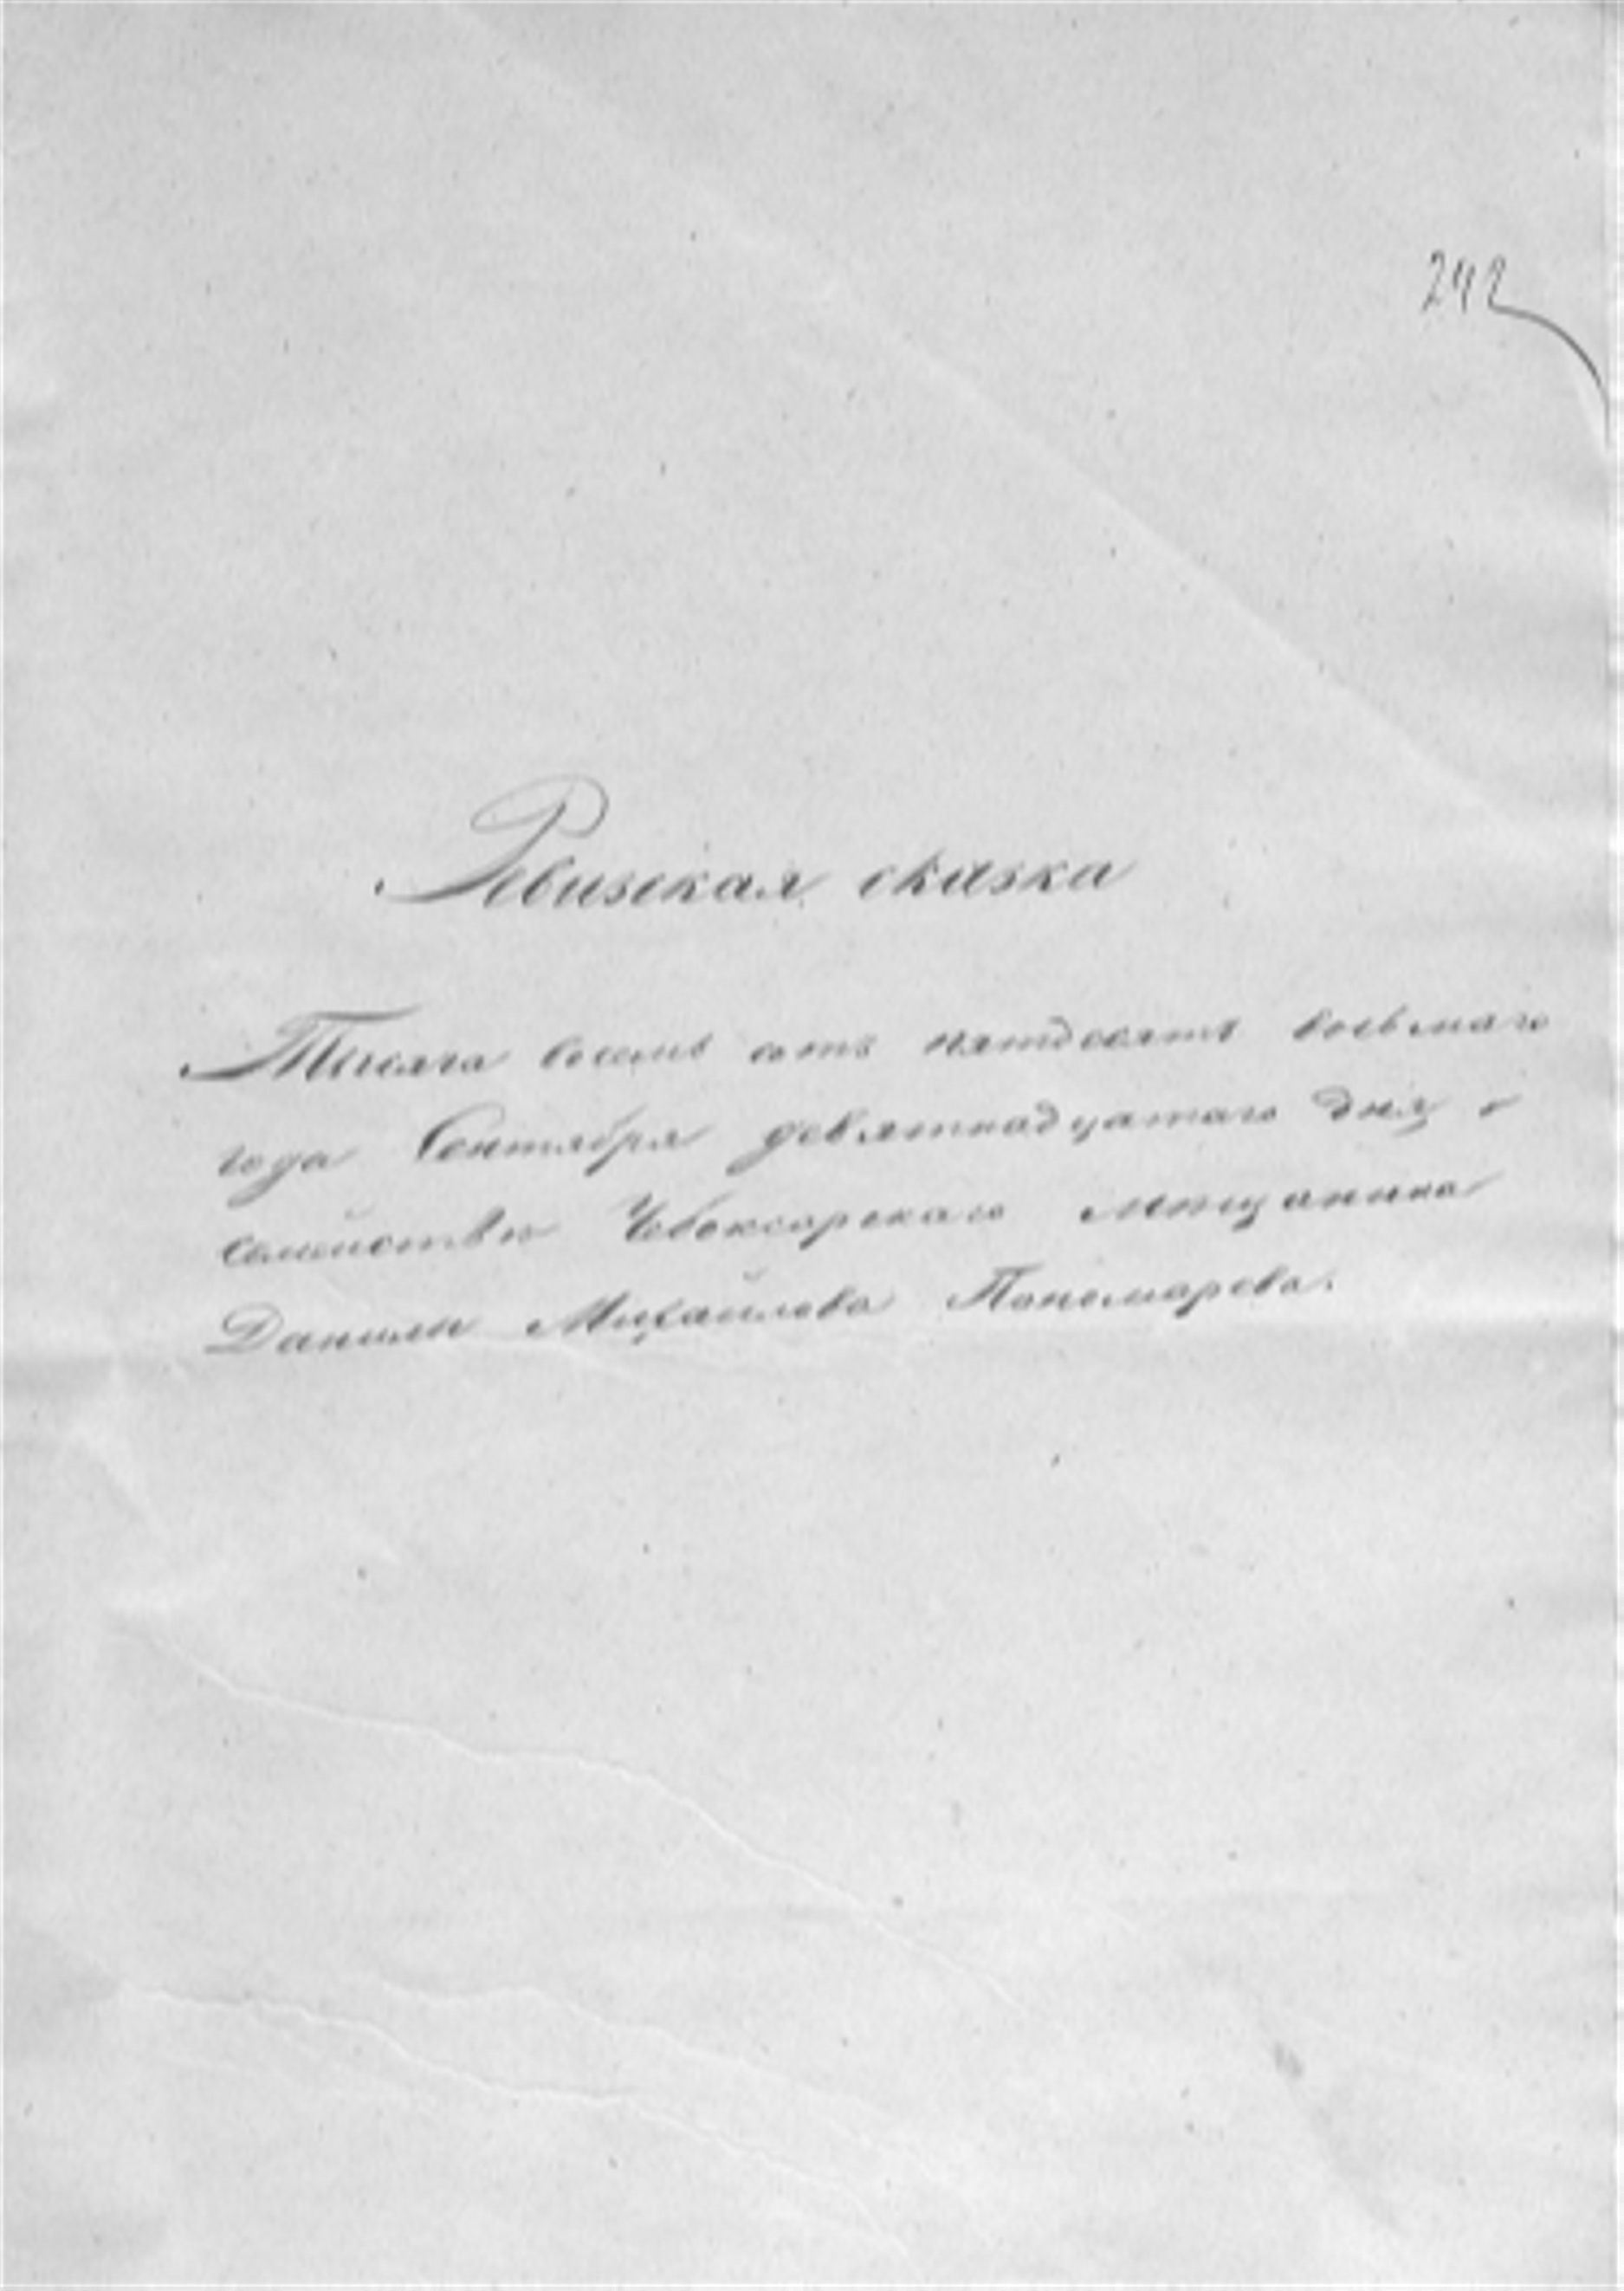 242
Ревизская сказка
Тысяча восемь сотъ пятдесятъ восьмаго
года Сентября девятнадцатаго дня о
семействѣ Чебоксарскаго мѣщанина
Данилы Михайлова Пономарева.